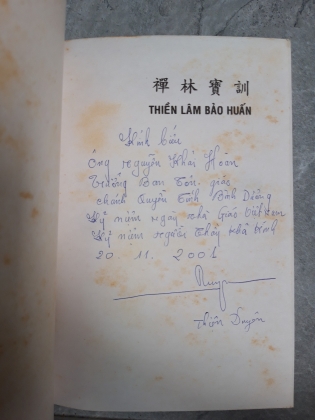 禪林寶訓
THIỀN LÂM BẢO HUẤN
Kính biếu
Ông Nguyễn Khải Hoàn
Trưởng Ban Tôn giáo
chánh quyền tỉnh Bình Dương
Kỷ niệm ngày Nhà Giáo Việt Nam
Kỷ niệm người Thầy khả kính
20. 11. 2001
Thiện Duyên